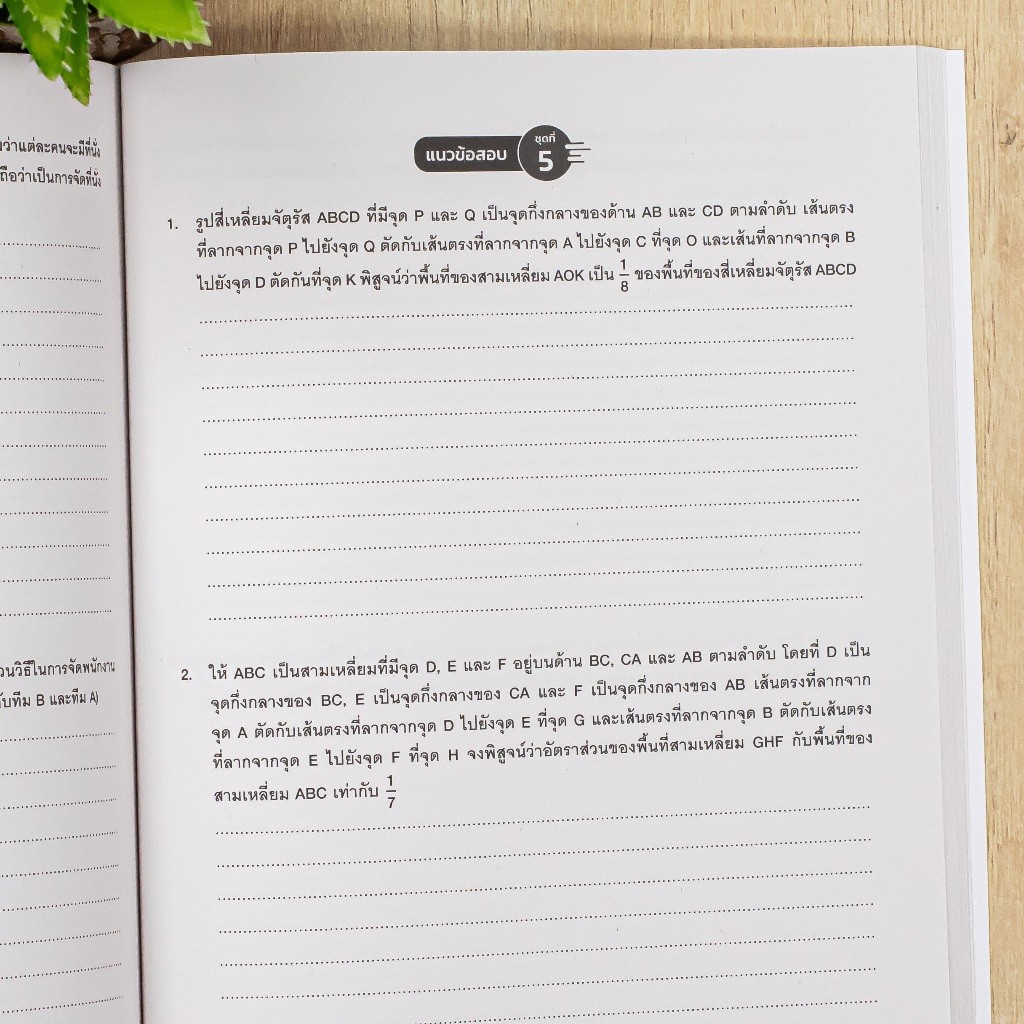 ว่าแต่ละคนจะมีที่นั่ง
ถือว่าเป็นการจัดที่นั่ง
วนวิธีในการจัดพนักงาน
กับทีม B และทีม A)
แนวข้อสอบ ชุดที่ 5
1. รูปสี่เหลี่ยมจัตุรัส ABCD ที่มีจุด P และ Q เป็นจุดกึ่งกลางของด้าน AB และ CD ตามลำดับ เส้นตรง
ที่ลากจากจุด P ไปยังจุด Q ตัดกับเส้นตรงที่ลากจากจุด A ไปยังจุด C ที่จุด O และเส้นที่ลากจากจุด B
ไปยังจุด D ตัดกันที่จุด K พิสูจน์ว่าพื้นที่ของสามเหลี่ยม AOK เป็น 1/8 ของพื้นที่ของสี่เหลี่ยมจัตุรัส ABCD
2. ให้ ABC เป็นสามเหลี่ยมที่มีจุด D, E และ F อยู่บนด้าน BC, CA และ AB ตามลำดับ โดยที่ D เป็น
จุดกึ่งกลางของ BC, E เป็นจุดกึ่งกลางของ CA และ F เป็นจุดกึ่งกลางของ AB เส้นตรงที่ลากจาก
จุด A ตัดกับเส้นตรงที่ลากจากจุด D ไปยังจุด E ที่จุด G และเส้นตรงที่ลากจากจุด B ตัดกับเส้นตรง
ที่ลากจากจุด E ไปยังจุด F ที่จุด H จงพิสูจน์ว่าอัตราส่วนของพื้นที่สามเหลี่ยม GHF กับพื้นที่ของ
สามเหลี่ยม ABC เท่ากับ 1/7